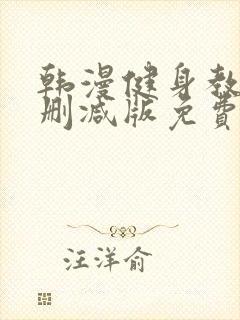 韩漫健身教
删减版免費
汪洋俞